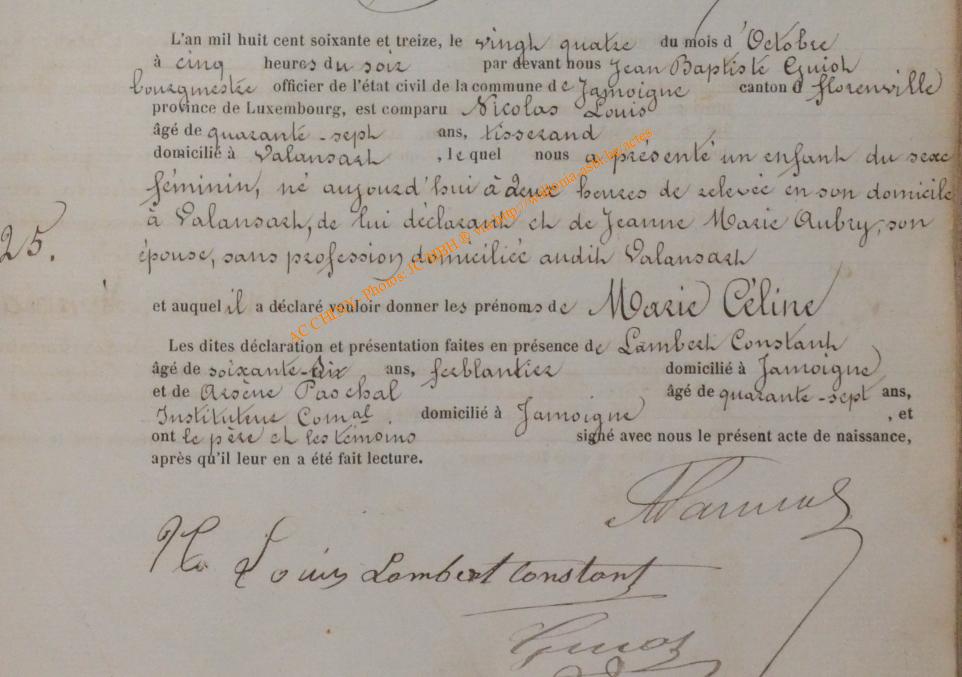 L'an mil huit cent soixante et treize, le vingt quatre du mois d'Octobre
à cinq heures du soir par devant nous Jean Baptiste Guiot
bourgmestre officier de l'état civil de la commune de Jamoigne canton d florenville
province de Luxembourg, est comparu Nicolas Louis
âgé de quarante-sept ans, tisserand
domicilié à Valansart, lequel nous a présenté un enfant du sexe
féminin, né aujourd'hui à deux heures de relevée en son domicile
à Valansart, de lui déclarant et de Jeanne Marie Aubry, son
25.
épouse, sans profession domiciliée audit Valansart
et auquel il a déclaré vouloir donner les prénoms de Marie Céline
Les dites déclaration et présentation faites en présence de Lambert Constant
âgé de soixante-dix ans, ferblantier domicilié à Jamoigne
et de Arsène Paschal âgé de quarante-sept ans,
Instituteur Comal. domicilié à Jamoigne, et
ont le père et les témoins signé avec nous le présent acte de naissance,
après qu'il leur en a été fait lecture.
Louis Lambert Constant
Guiot
AC CHINY. Photos: JC